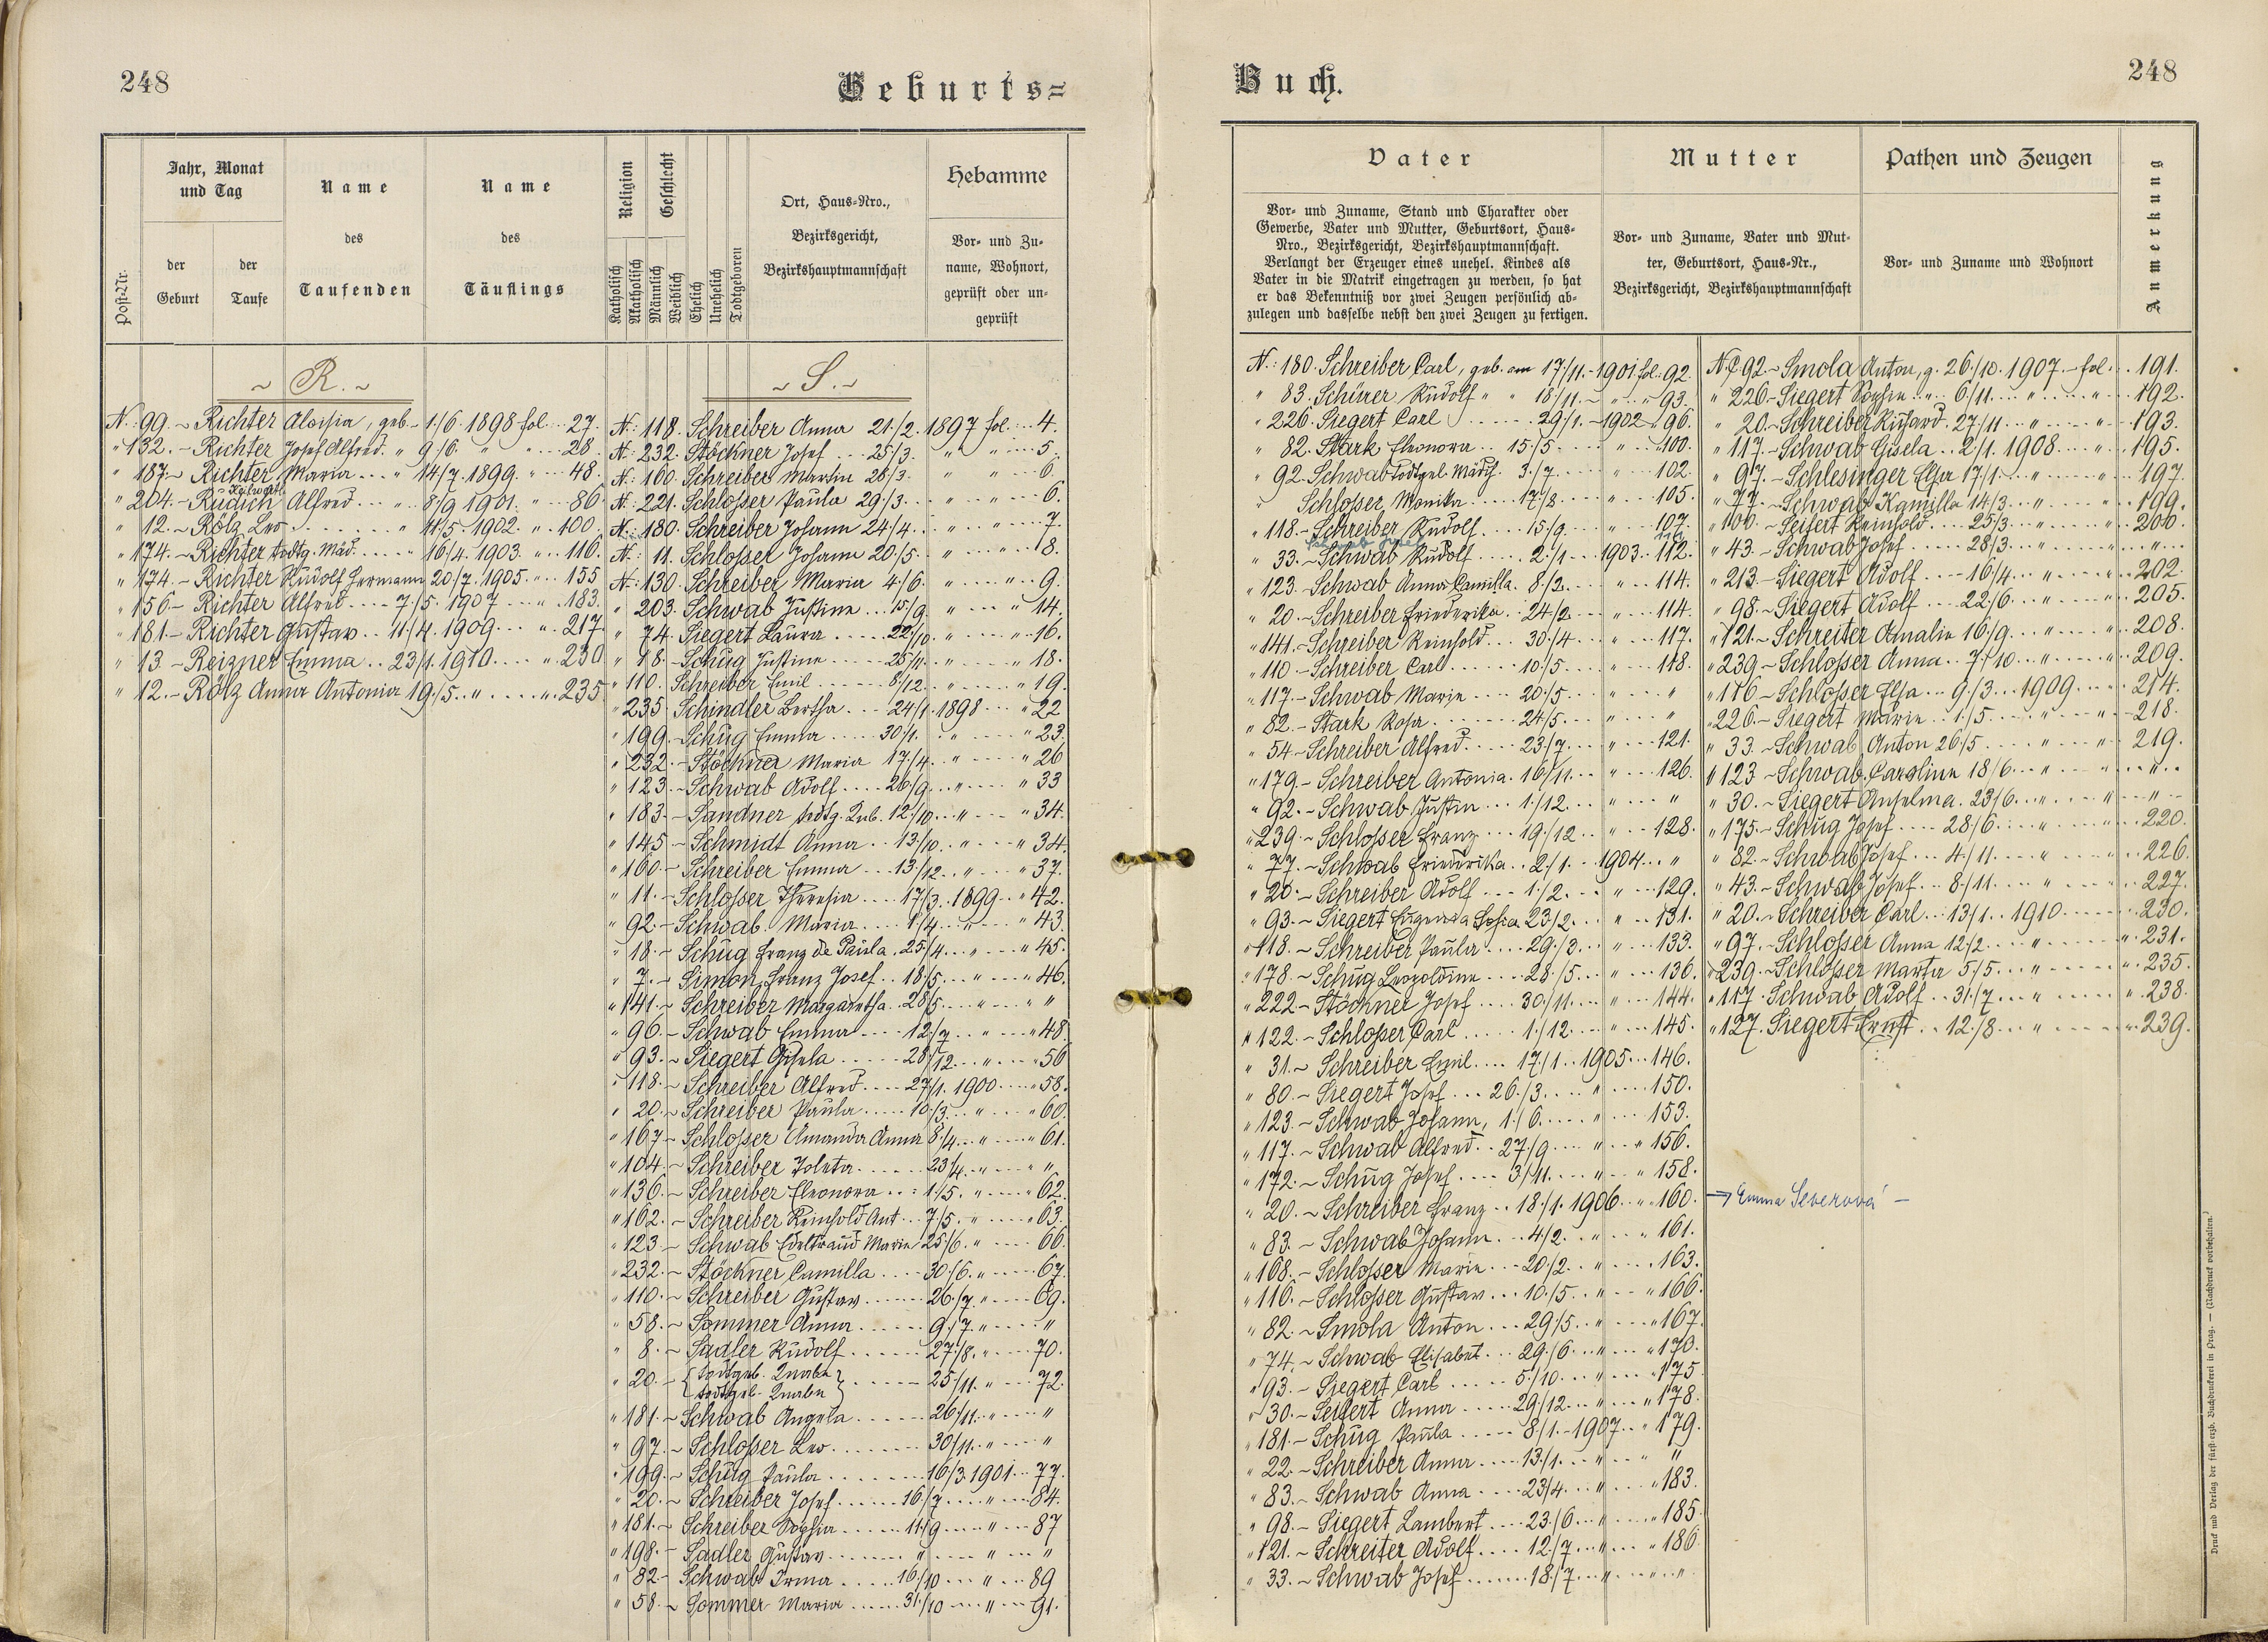 248
Geburts=
Buch.
248
Post-Nr.
Jahr, Monat
und Tag
der
Geburt
der
Taufe
Name
des
Taufenden
Name
des
Täuflings
Religion
Katholisch
Akatholisch
Geschlecht
Männlich
Weiblich
Ehelich
Unehelich
Todtgeboren
Ort, Haus-Nro.,
Bezirksgericht,
Bezirkshauptmannschaft
Hebamme
Vor- und Zu-
name, Wohnort,
geprüft oder un-
geprüft
Vater
Vor- und Zuname, Stand und Charakter oder
Gewerbe, Vater und Mutter, Geburtsort, Haus-
Nro., Bezirksgericht, Bezirkshauptmannschaft.
Verlangt der Erzeuger eines unehel. Kindes als
Vater in die Matrik eingetragen zu werden, so hat
er das Bekenntniß vor zwei Zeugen persönlich ab-
zulegen und dasselbe nebst den zwei Zeugen zu fertigen.
Mutter
Vor- und Zuname, Vater und Mut-
ter, Geburtsort, Haus-Nr.,
Bezirksgericht, Bezirkshauptmannschaft
Pathen und Zeugen
Vor- und Zuname und Wohnort
Anmerkung
~ R. ~
N: 99. ~ Richter Aloisia, geb. 1/6. 1898 fol. 27.
" 132. ~ Richter Josef Alfred. " 9/6. " " 28.
" 187. ~ Richter Maria " 14/7. 1899. " 48.
" 204. ~ Rudich Alfred " 8/9 1901. " 86.
" 12. ~ Rölz Leo " 11/5. 1902. " 100.
" 174. ~ Richter todtg. Mäd. " 16/4. 1903. " 116.
" 174. ~ Richter Rudolf Hermann 20/7. 1905. " 155
" 156 ~ Richter Alfred 7/5. 1907 " 183.
" 181 ~ Richter Gustav 11/4. 1909 " 217.
" 13. ~ Reizner Emma 23/1. 1910 " 230
" 12. ~ Rölz Anna Antonia 19/5. " " 235
~ S. ~
N: 118. Schreiber Anna 21/2. 1897 fol. 4.
N: 232. Stöckner Josef 25/3. " " 5.
N: 160. Schreiber Martin 28/3. " " 6.
N: 221. Schlosser Paula 29/3 " " 6.
N: 180. Schreiber Johann 24/4. " " 7.
N: 11. Schlosser Johann 20/5. " " 8.
N: 130. Schreiber Maria 4/6. " " 9.
" 203. Schwab Justine 15/9. " " 14.
" 74. Siegert Laura 22/10. " " 16.
" 18. ~ Schug Justine 25/11. " " 18.
" 110. Schreiber Emil 8/12. " " 19.
" 235. Schindler Bertha 24/1. 1898 " 22
" 199. ~ Schug Emma 30/1. " " 23.
" 232. ~ Stöckner Maria 17/4. " " 26
" 123. ~ Schwab Adolf 26/9. " " 33
" 183. ~ Sandner todtg. Knb. 12/10. " " 34.
" 145. ~ Schmidt Anna 13/10. " " 34.
" 160. ~ Schreiber Emma 13/12. " " 37.
" 11. ~ Schlosser Theresia 17/3. 1899 " 42.
" 92. ~ Schwab Maria 1/4. " " 43.
" 18. ~ Schug Franz de Paula 25/4. " " 45.
" 7. ~ Simon Franz Josef 18/5. " " 46.
" 141. ~ Schreiber Margaretha 28/5. " " "
" 96. ~ Schwab Emma 12/7 " " 48.
" 93. ~ Siegert Gisela 28/12. " " 56
" 118. ~ Schreiber Alfred 27/1. 1900 " 58.
" 20. ~ Schreiber Paula 10/3. " " 60.
" 167 ~ Schlosser Amanda Anna 8/4. " " 61.
" 104. ~ Schreiber Joleta 23/4. " " "
" 136. ~ Schreiber Eleonora 1/5. " " 62.
" 162. ~ Schreiber Reinhold Ant. 7/5. " " 63.
" 123. ~ Schwab Edeltraud Marie 25/6. " 66.
" 232. ~ Stöckner Camilla 30/6. " 67.
" 110. ~ Schreiber Gustav 26/7. " 69.
" 58. ~ Sommer Anna 9/7 " "
" 8. ~ Sadler Rudolf 27/8. " 70.
" 20. ~ { todtgeb. Knabe
todtgeb. Knabe } 25/11. " 72.
" 181. ~ Schwab Angela 26/11. " "
" 97. ~ Schlosser Leo 30/11. " "
" 199. ~ Schug Paula 16/3. 1901 77.
" 20. ~ Schreiber Josef 16/7 " 84.
" 181. ~ Schreiber Sophia 11/9 " 87
" 198. ~ Sadler Gustav " " "
" 82 ~ Schwab Irma 16/10 " 89
" 58. ~ Sommer Maria 31/10 " 91.
N: 180. Schreiber Carl, geb. am 17/11. 1901 fol. 92.
" 83. Schürer Rudolf " " 18/11. " " 93.
" 226. Siegert Carl 29/1. 1902 " 96.
" 82. Stark Eleonora 15/5 " 100.
" 92. Schwab todtgeb. Mädch. 3/7 " 102.
" Schlosser Monika 17/8 " 105.
" 118. ~ Schreiber Rudolf 15/9. " 107.
" 33. ~ Schwab Rudolf 2/1 1903. 112.
" 123. ~ Schwab Anna Camilla. 8/2. " 114.
" 20. ~ Schreiber Friederika. 24/2 " 114.
" 141. ~ Schreiber Reinhold. 30/4 " 117.
" 110 ~ Schreiber Carl 10/5 " 118.
" 117. ~ Schwab Marie 20/5 " "
" 82. ~ Stark Rosa 24/5. " "
" 54 ~ Schreiber Alfred 23/7. " 121.
" 179. ~ Schreiber Antonia. 16/11. " 126.
" 92. ~ Schwab Justin 1/12. " "
" 239. ~ Schlosser Franz 19/12. " 128.
" 77. ~ Schwab Friederika. 2/1. 1904 "
" 20. ~ Schreiber Adolf 1/2. " 129.
" 93. ~ Siegert Eugenia Sofia 23/2. " 131.
" 118. ~ Schreiber Paula 29/3. " 133.
" 178. ~ Schug Leopoldine 28/5. " 136.
" 222 ~ Stöckner Josef 30/11. " 144.
" 122. ~ Schlosser Carl 1/12. " 145.
" 31. ~ Schreiber Emil 17/1. 1905 146.
" 80. ~ Siegert Josef 26/3. " 150.
" 123. ~ Schwab Johann, 1/6. " 153.
" 117. ~ Schwab Alfred. 27/9 " " 156.
" 172. ~ Schug Josef 3/11. " " 158.
" 20. ~ Schreiber Franz 18/1. 1906 " 160.
" 83. ~ Schwab Johann 4/2. " " 161.
" 168. ~ Schlosser Marie 20/2. " 163.
" 116. ~ Schlosser Gustav 10/5. " " 166.
" 82. ~ Smola Anton 29/5. " " 167.
" 74. ~ Schwab Elisabet 29/6. " " 170.
" 93. ~ Siegert Carl 5/10. " " 175
" 30. ~ Seifert Anna 29/12. " " 178.
" 181. ~ Schug Paula 8/1. 1907 " 179.
" 22. ~ Schreiber Anna 13/1. " " "
" 83. ~ Schwab Anna 23/4. " " 183.
" 98. ~ Siegert Lambert 23/6. " " 185
" 121. ~ Schreiter Adolf 12/7 " " 186.
" 33. ~ Schwab Josef 18/7 " " "
N: 92. ~ Smola Anton, g. 26/10. 1907 fol. 191.
" 226. ~ Siegert Sophie " 6/11. " " 192.
" 20. ~ Schreiber Richard. 27/11 " " 193.
" 117. ~ Schwab Gisela 2/1. 1908 " 195.
" 97. ~ Schlesinger Elsa 17/1. " " 197.
" 77. ~ Schwab Kamilla 14/3. " " 199.
" 100. ~ Seifert Reinhold 25/3. " " 200.
" 43. ~ Schwab Josef 28/3 " " "
" 213. ~ Siegert Adolf 16/4. " " 202.
" 98. ~ Siegert Adolf 22/6. " " 205.
" 121. ~ Schreiter Amalie 16/9. " " 208.
" 239. ~ Schlosser Anna 7/10. " " 209.
" 116 ~ Schlosser Elsa 9/3. 1909 214.
" 226. ~ Siegert Marie 1/5. " " 218.
" 33. ~ Schwab Anton 26/5 " " 219.
" 123 ~ Schwab Caroline 18/6. " " "
" 30. ~ Siegert Anselma. 23/6. " " "
" 175. ~ Schug Josef 28/6 " " 220.
" 82. ~ Schwab Josef 4/11. " 226.
" 43. ~ Schwab Josef 8/11. " 227.
" 20. ~ Schreiber Carl 13/1. 1910 230.
" 97. ~ Schlosser Anna 12/2. " " 231.
" 239. ~ Schlosser Marta 5/5. " " 235.
" 117. Schwab Adolf 31/7. " " 238.
" 127. Siegert Ernst 12/8 " " 239.
→ Emma Severová –
Druck und Verlag der fürst-erzb. Buchdruckerei in Prag. — (Nachdruck vorbehalten.)